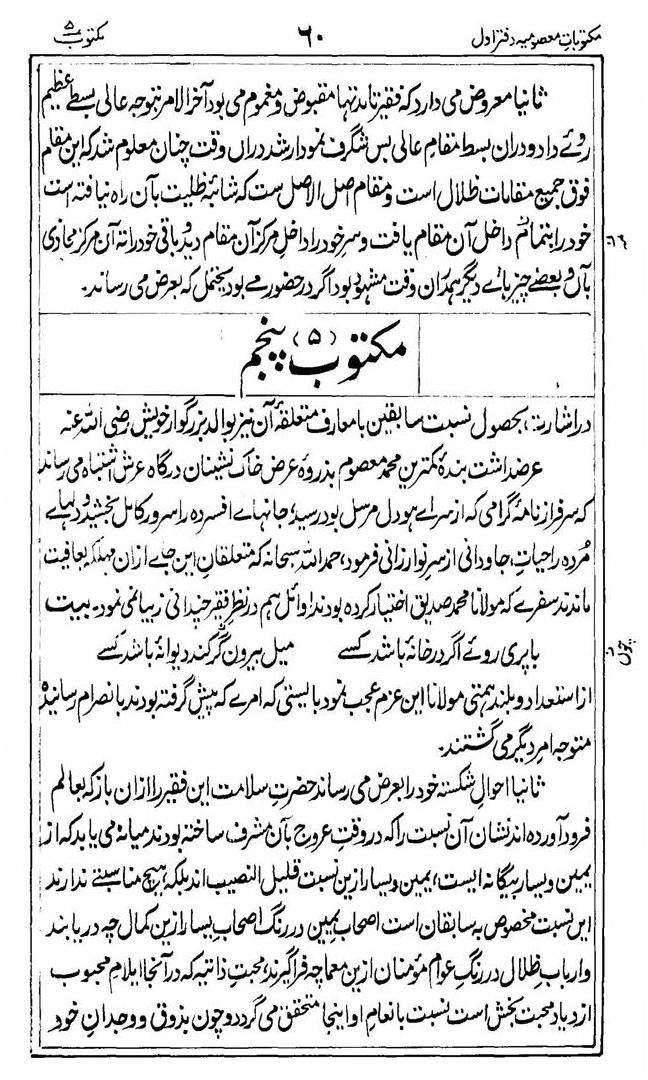 مکتوباتِ معصومیہ دفتر اول ۶۰ مکتوب ۵
ثانیا معروض می دارد که فقیر تا مدتها مقبوض و مغموم می بود آخر الامر بتوجہ عالی بسطے عظیم
روئے داد و دران بسط مقامِ عالی بس شگرف نمودار شد دراں وقت چنان معلوم شد که این مقام
فوق جمیع مقامات ظلال است و مقام اصل الاصل ست که شائبۂ ظلیت بآن راه نیافته است
خود را بتمامہٖ داخل آن مقام یافت و سرِ خود را داخلِ مرکز آن مقام دید و باقی خود را نه آن مرکز محاذی
بآں و بعضے چیزہائے دیگر ہمدران وقت مشہود بود اگر در حضور مے بود یحتمل که بعرض می رساند۔
مکتوب (۵) پنجم
در اشارت بحصول نسبت سابقین با معارف متعلقۂ آن نیز بوالد بزرگوار خویش رضی اللہ عنہ
عرضداشت بندۂ کمترین محمد معصوم بذروۂ عرض خاک نشینان درگاه عرش اشتباه می رساند
که سرفراز نامۂ گرامی که از سرائے ہودل مرسل بود رسید، جانہائے افسرده را سرور کامل بخشید و دلہائے
مُرده را حیاتِ جاودانی از سرِ نو ارزانی فرمود، حمد اللہ سبحانہ که متعلقانِ این جائے ازان مہلکہ بعافیت
ماندند سفرے که مولانا محمد صدیق اختیار کرده بودند اوائل ہم در نظرِ فقیر چندانی زیبا نمی نمود۔ بیت
با پری روئے اگر در خانہ باشد کسے میل بیرون گر کند دیوانہ باشد کسے
چوں
از استعداد و بلند ہمتی مولانا این عزم عجب نمود بایستی که امرے که پیش گرفته بودند بانصرام رسانیده
متوجہ امرِ دیگر می گشتند۔
ثانیا احوالِ شکستہ خود را بعرض می رساند حضرتِ سلامت این فقیر را ازان باز که بعالم
فرود آورده اند نشان آن نسبت را که در وقتِ عروج بآن مشرف ساختہ بودند میانہ می یابد که از
یمین و یسار بیگانہ ایست، یمین و یسار ازین نسبت قلیل النصیب اند بلکہ ہیچ مناسبتے ندارند
این نسبت مخصوص بہ سابقان است اصحاب یمین در رنگ اصحابِ یسار ازین کمال چہ دریابند
و اربابِ ظلال در رنگِ عوام مؤمنان ازین معما چہ فرا گیرند، محبتِ ذاتیہ که در آنجا ایلامِ محبوب
ازدیاد محبت بخش است نسبت بانعامِ او اینجا متحقق می گردد و چون بذوق و وجدانِ خود